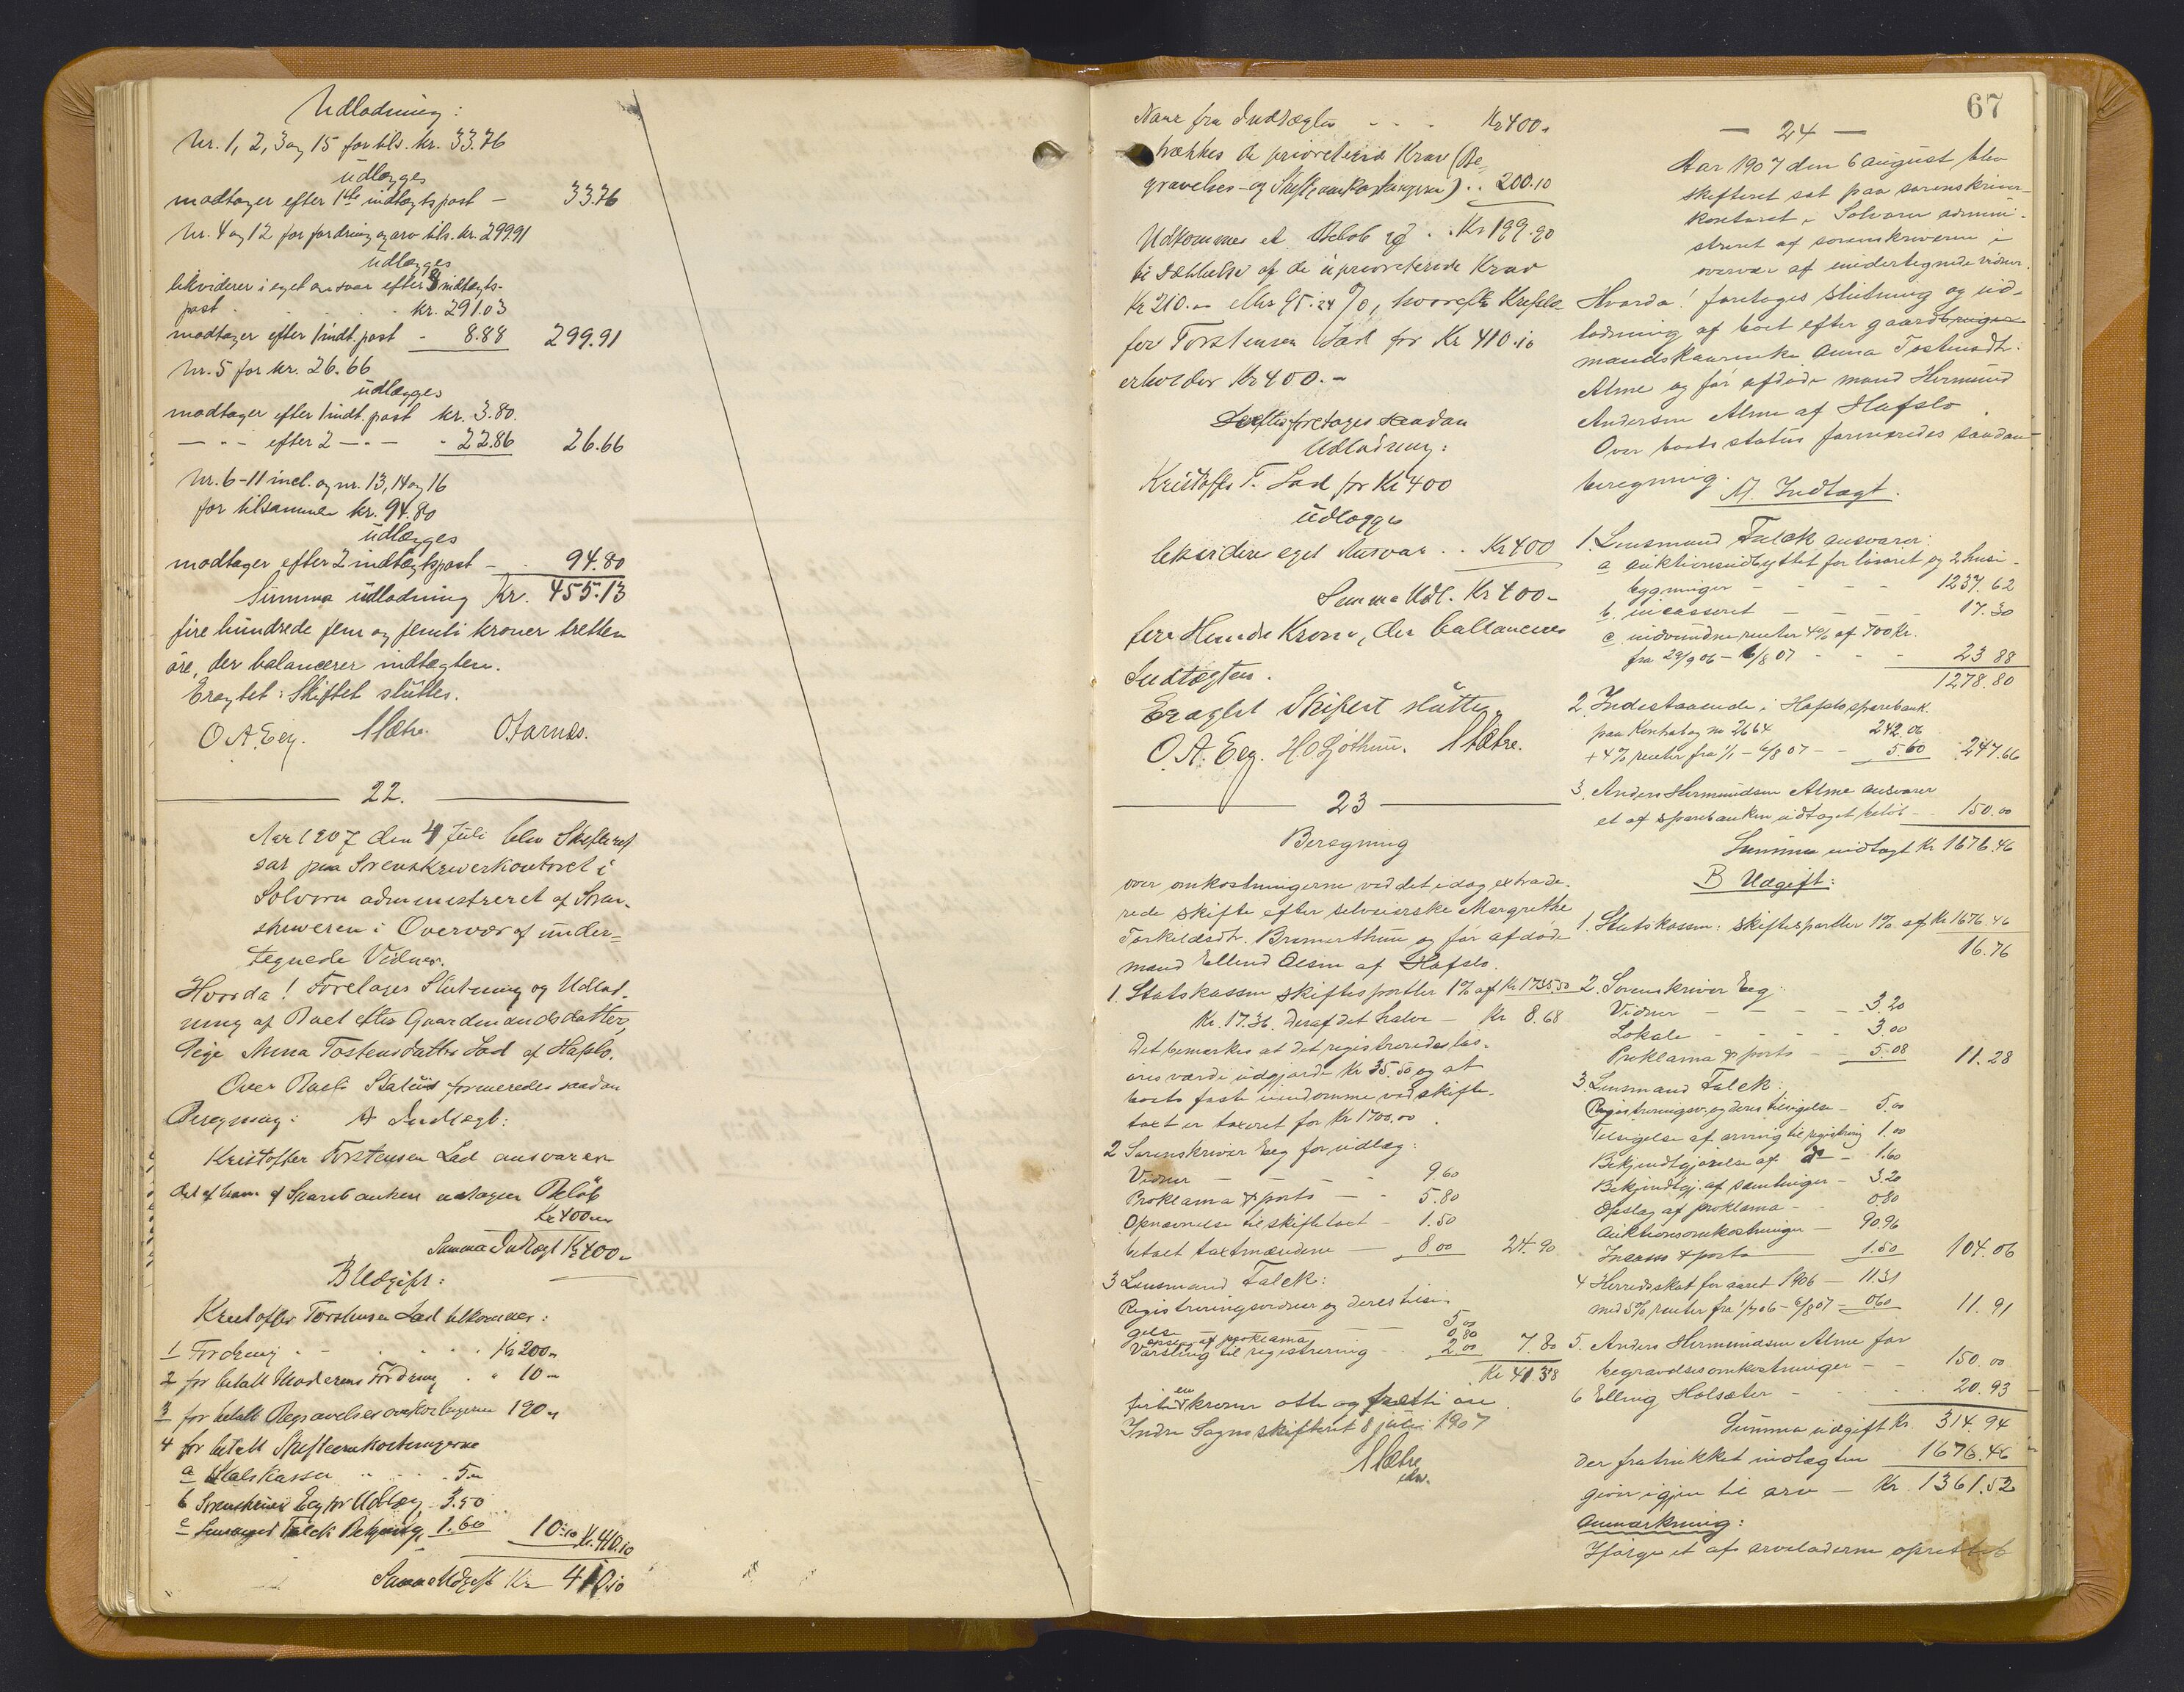 Udlodning:
Nr. 1, 2, 3 og 15 for tils. kr. 33.76
udlægges
modtager efter 1ste indtægtspost - 33.76
Nr. 4 og 12 for fordring og arv tils. kr. 299.91
udlægges
likviderer i eget ansvar efter 3 indtægts-
post . . . . . kr. 291.03
modtager efter 1 indt. post - 8.88 299.91
Nr. 5 for kr. 26.66
udlægges
modtager efter 1 indt. post kr. 3.80.
— " — efter 2 — " — " 22.86 26.66
Nr. 6-11 incl. og nr. 13, 14 og 16
for tilsammen kr. 94.80
udlægges
modtager efter 2 indtægtspost - 94.80
Summa udlodning Kr. 455.13
fire hundrede fem og femti kroner tretten
öre, der balancerer indtægten.
Eragtet: Skiftet sluttes.
O A. Eeg. Mæhre. O. Aarnæs.
22.
Aar 1907 den 4 Juli blev Skifteret
sat paa Sorenskriverkontoret i
Solvorn administreret af Soren-
skriveren i Overvær af under-
tegnede Vidner.
Hvorda! Foretages Slutning og Udlod-
ning af Boet efter Gaardmandsdatter,
Pige Anna Tostensdatter Lad af Hafslo.
Over Boets Status formeredes saadan
Beregning: A Indtægt:
Kristoffer Torstensen Lad ansvarer
det af ham af Sparebanken udtagne Beløb
Kr 400 "
Summa Indtægt Kr 400 "
B Udgift:
Kristoffer Torstensen Lad tilkommer:
1 Fordring - . . . . . Kr 200 "
2 for betalt Moderens Fordring . " 10 "
3 for betalt Begravelsesomkostningerne 190 "
4 for betalt Skifteomkostningerne
a Statskassen . . . . 5 "
b Sorenskriver Eeg for Udlæg 3.50
c Lensmand Falck Bekjendtg. 1.60 10.10 Kr. 410.10
Summa Udgift Kr 410.10
67
Naar fra Indtægten - - - Kr 400 "
trækkes de prioriterede Krav (Be-
gravelses- og Skifteomkostningerne) . . 200.10
Udkommer et Beløb af . . Kr 199.90
til Dækkelse af de uprioriterede Krav
Kr 210. - eller 95.24 %, hvorefter Kristof-
fer Torstensen Lad for Kr 410.10
erholder Kr 400. -
Derefter foretages saadan
Udlodning:
Kristoffer T. Lad for Kr 400
udlægges
likviderer eget Ansvar . . Kr 400
Summa Udl. Kr 400 -
fire Hundre Kroner, der ballancerer
Indtægten.
Eragtet Skiftet sluttes.
O. A. Eeg. H. O. Ljøthun. Mæhre.
23
Beregning
over omkostningerne ved det idag extrade-
rede skifte efter selveierske Margrethe
Torkildsdtr. Bremerthun og før afdøde
mand Ellend Olsen af Hafslo.
1. Statskassen skiftesportler 1% af Kr. 1735.50
Kr. 17.36. Deraf det halve - Kr 8.68
Det bemærkes at det registreredes løs-
øres værdi udgjorde Kr 35.50 og at
boets faste eiendomme ved skifte-
taxt er taxeret for Kr 1700.00.
2 Sorenskriver Eeg for udlæg:
Vidner - - - - 9.60
Proklama & porto - - 5.80
Opnævnelse til skiftetaxt - 1.50
betalt taxtmændene - 8.00 24.90
3 Lensmand Falck:
Registreringsvidner og deres tilsi-
gelse - - - 5.00
opslag af proklama 0.80
Varsling til registrering - 2.00 7.80
Kr 41.38
firti en kroner otte og tretti øre.
Indre Sogns skifteret 8 juli 1907
Mæhre
edsv.
— 24 —
Aar 1907 den 6 august blev
skifteret sat paa sorenskriver-
kontoret i Solvorn admini-
streret af sorenskriveren i
overvær af undertegnede vidner.
Hvorda! foretages slutning og ud-
lodning af boet efter gaardbruger
mandskaarenke Anna Tostensdtr.
Alme og før afdøde mand Hermund
Andersen Alme af Hafslo.
Over boets status formeredes saadan
beregning.
A. Indtægt.
1. Lensmand Falck ansvarer:
a auktionsudbyttet for løsøret og 2 husi-
bygninger - - - - 1237.62
b. incasseret - - - - 17.30
c indvundne renter 4% af 700 kr.
fra 29/9 06 - 6/8 07 - - - 23 88
1278.80
2 Indestaaende i Hafslo sparebank
paa Kontrabog no 2664 242.06
+ 4% renter fra 1/1 - 6/8 07 - - 5.60 247.66
3. Anders Hermundsen Alme ansvarer
et af sparebanken udtaget beløb - - 150.00
Summa indtægt Kr 1676.46
B Udgift:
1. Statskassen: skiftesportler 1% af Kr 1676.46
16.76
2. Sorenskriver Eeg:
Vidner - - - - 3.20
Lokale - - - - 3.00
Proklama & porto - - 5.08 11.28
3. Lensmand Falck:
Registreringsv. og deres tilsigelse - 5.00
Tilsigelse af arving til registrering 1.00
Bekjendtgjørelse af do - 1.60
Bekjendtgj. af samlinger - 3.20
Opslag af proklama - - 0.80
Auktionsomkostninger - 90.96
Incasso & porto 1.50 104.06
4 Herredsskat for aaret 1906 - 11.31
med 5% renter fra 1/7 06 - 6/8 07 - 0.60 11.91
5. Anders Hermundsen Alme for
begravelsesomkostninger - - 150.00
6 Elling Holsæter - - - - 20.93
Summa udgift Kr. 314.94
der fratrukket indtægten 1676.46
giver igjen til arv - Kr. 1361.52
Anmærkning:
Ifølge et af arveladerne oprettet